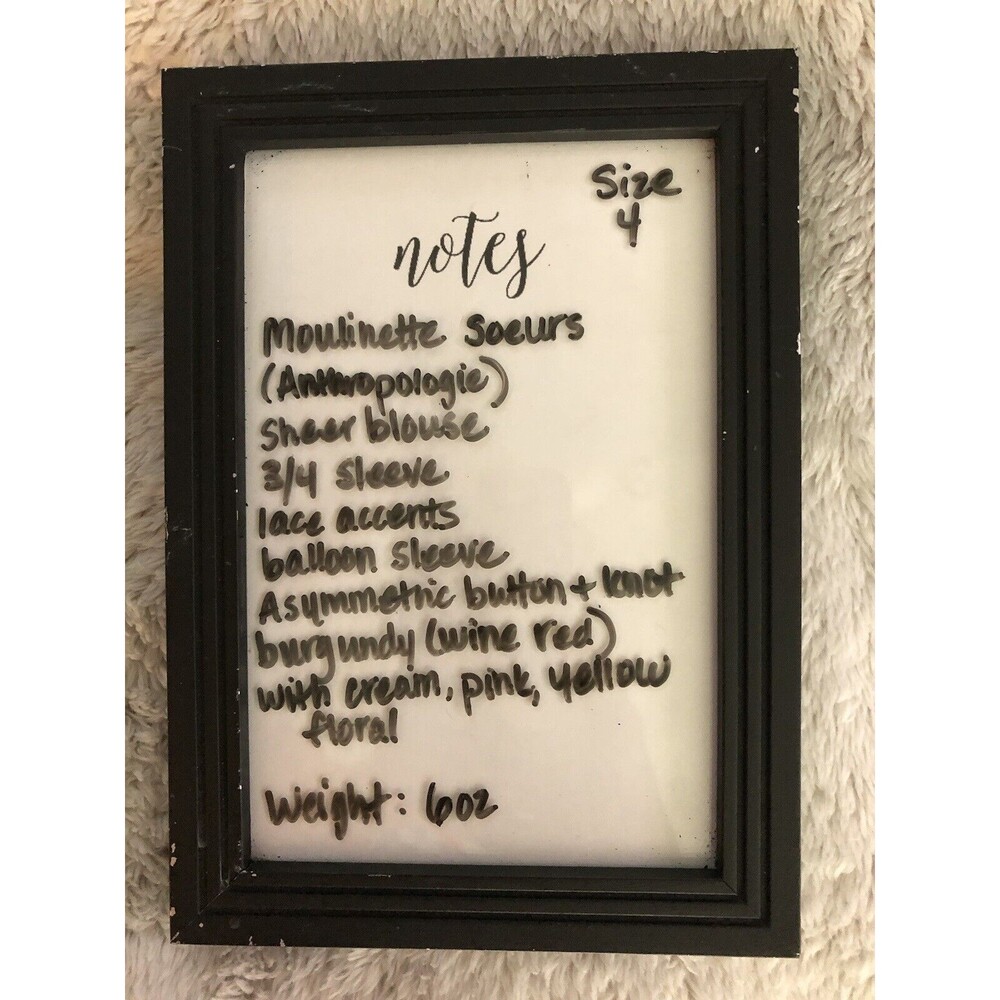 Size
4
notes
Moulinette Soeurs
(Anthropologie)
Sheer blouse
3/4 Sleeve
lace accents
balloon sleeve
Asymmetric button + knot
burgundy (wine red)
with cream, pink, yellow
floral
Weight: 6oz